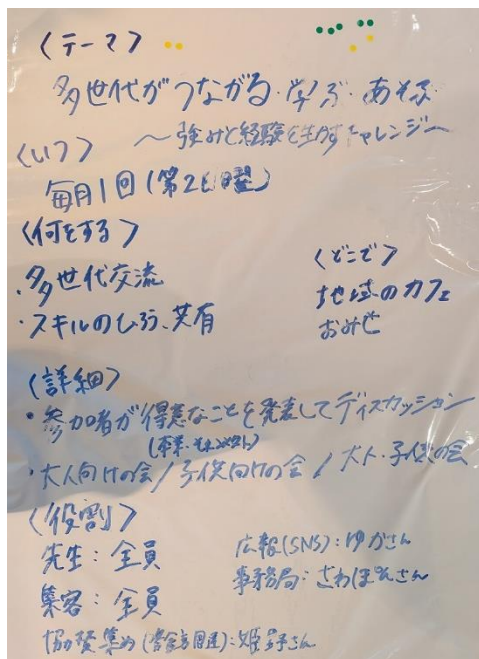 〈テーマ〉
多世代がつながる・学ぶ・あそぶ
〜強みと経験を生かすチャレンジ〜
〈いつ〉
毎月1回(第2土曜)
〈何をする〉
・多世代交流
・スキルのひろう、共有
〈どこで〉
地域のカフェ
おみせ
〈詳細〉
・参加者が得意なことを発表してディスカッション
・大人向けの会/子供向けの会/大人・子供の会
〈役割〉
先生:全員
集客:全員
協賛集め():姫子さん
広報(SNS):ゆかさん
事務局:さわぽんさん